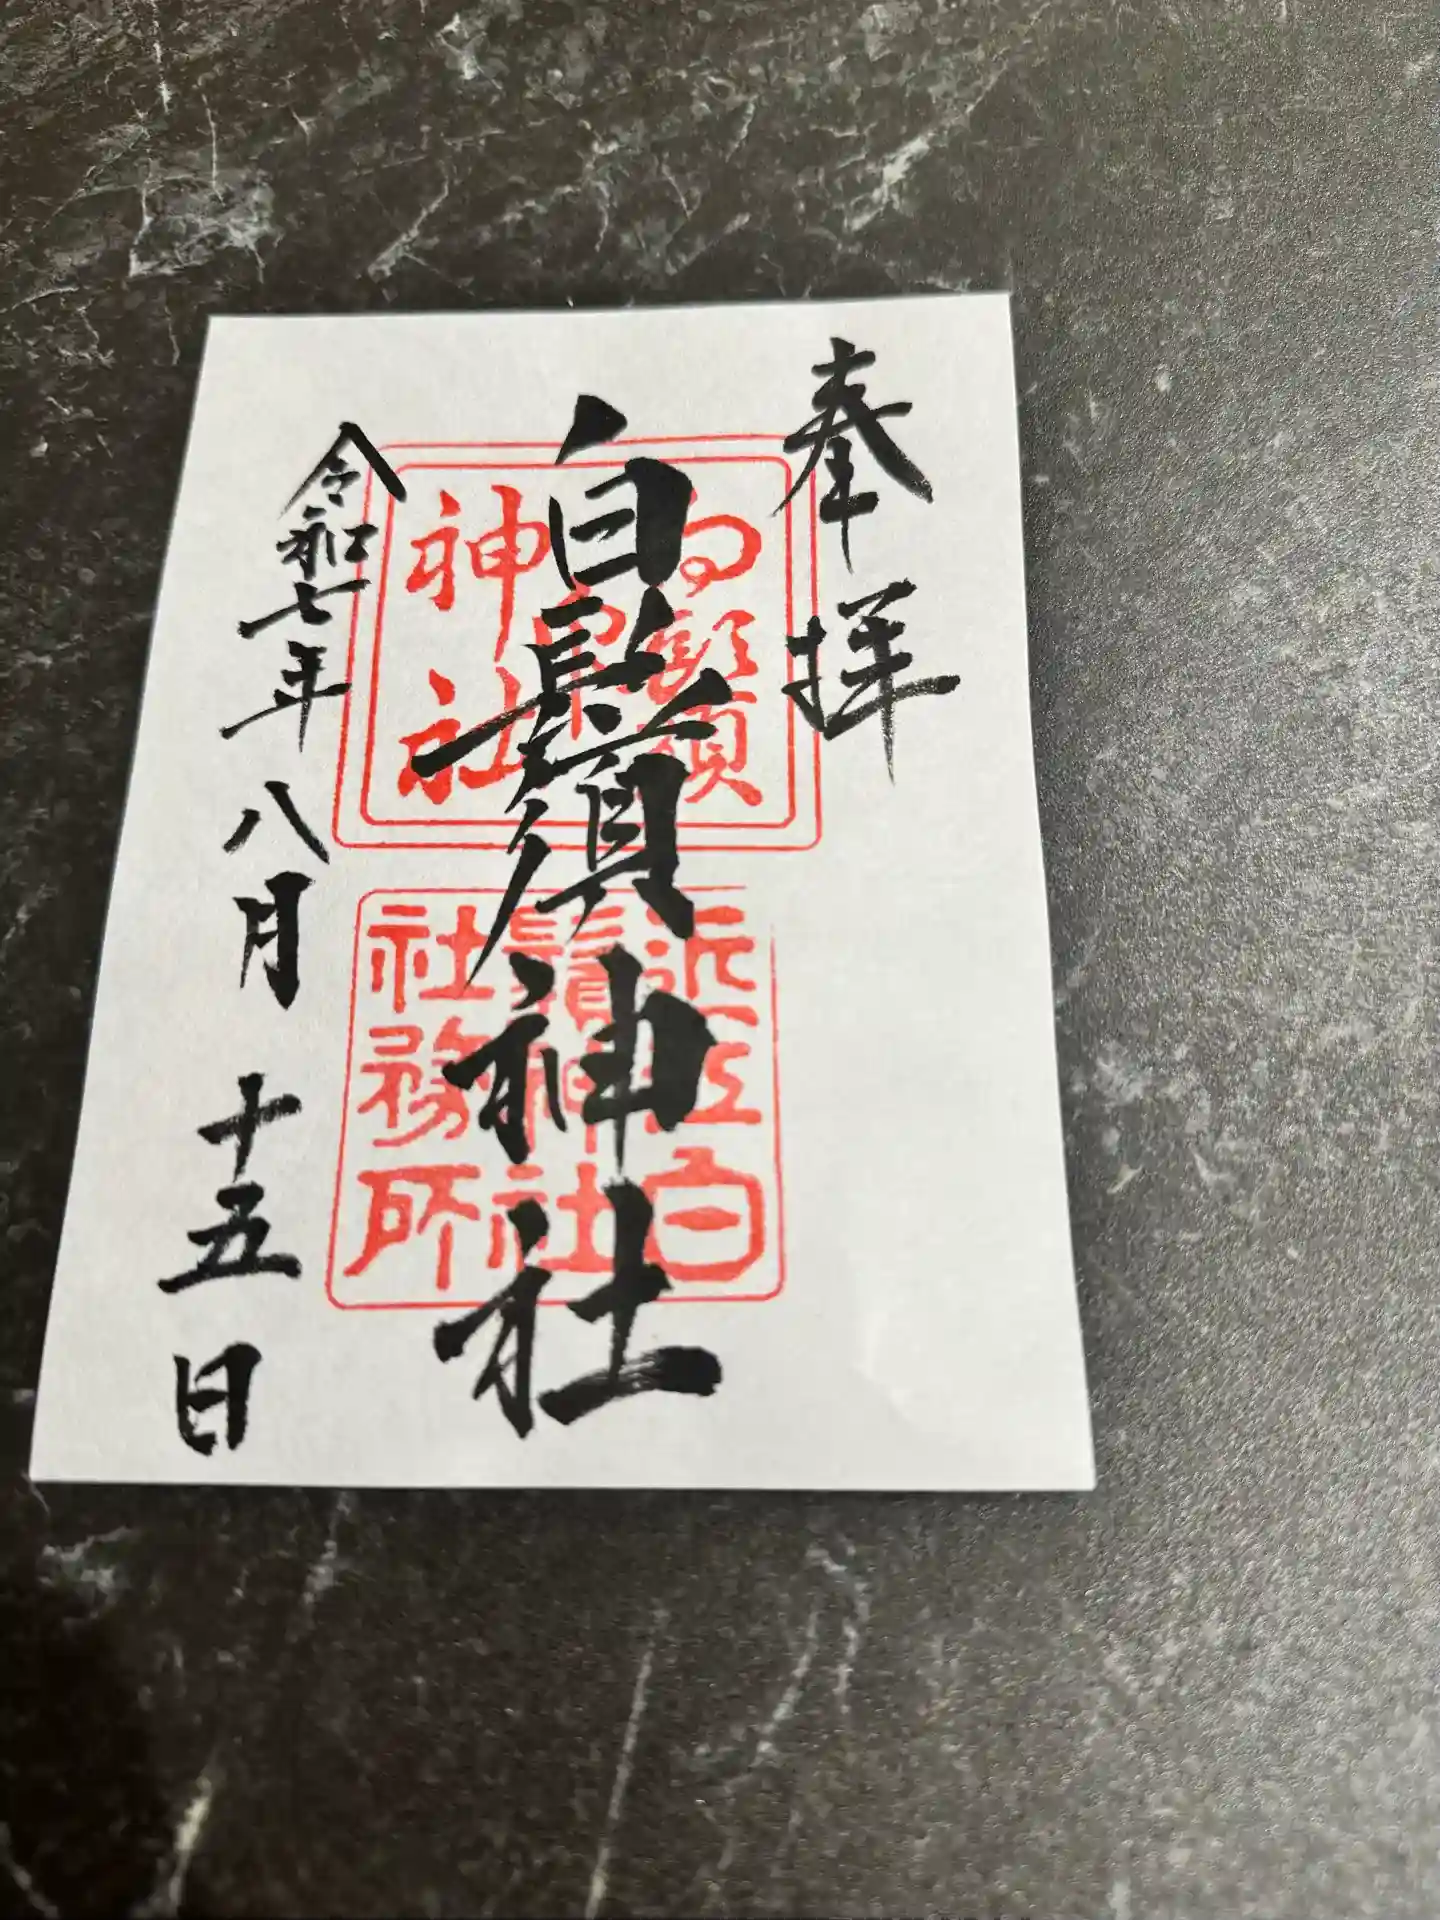 奉拝
白鬚神社
令和七年八月十五日
近江白
鬚神社
社務所
神社